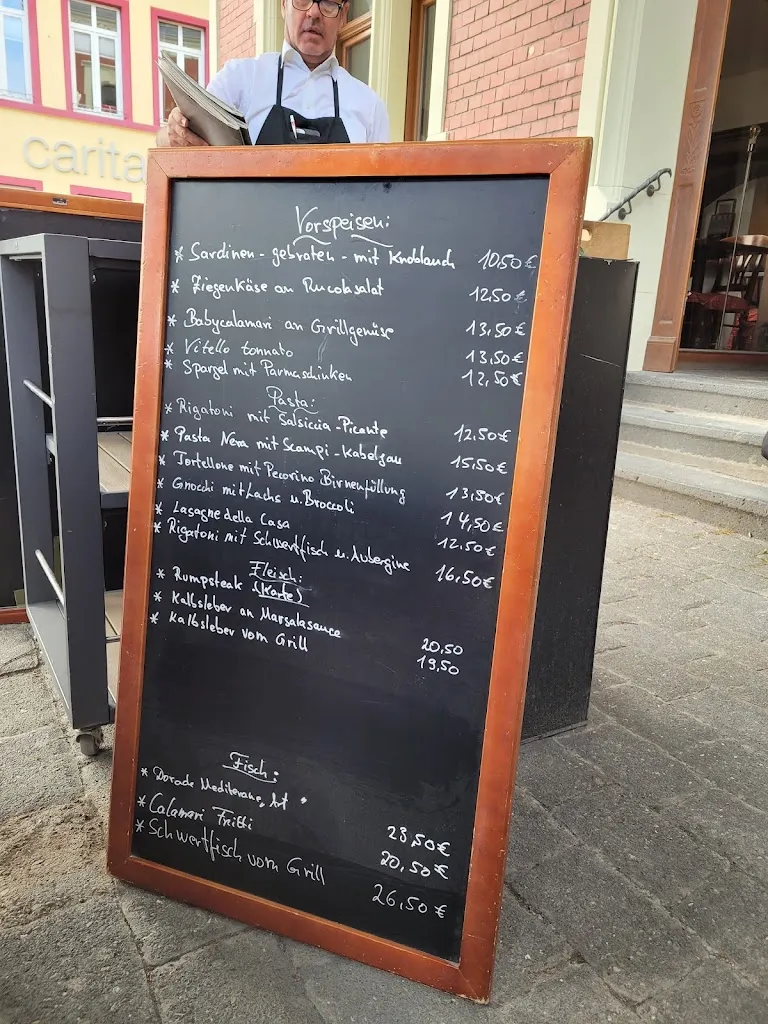 carita
Vorspeisen:
* Sardinen - gebraten - mit Knoblauch 10,50€
* Ziegenkäse an Rucolasalat 12,50€
* Babycalamari an Grillgemüse 13,50€
* Vitello tonnato 13,50€
* Spargel mit Parmaschinken 12,50€
Pasta:
* Rigatoni mit Salsiccia - Picante 12,50€
* Pasta Nera mit Scampi - Kabeljau 15,50€
* Tortellone mit Pecorino Birnenfüllung 13,80€
* Gnocchi mit Lachs u. Broccoli 14,50€
* Lasagne della Casa 12,50€
* Rigatoni mit Schwertfisch u. Aubergine 16,50€
Fleisch:
* Rumpsteak (Karte)
* Kalbsleber an Marsalasauce 20,50
* Kalbsleber vom Grill 19,50
Fisch:
* Dorade Mediterane, Art 23,50€
* Calamari Fritti 20,50€
* Schwertfisch vom Grill 26,50€